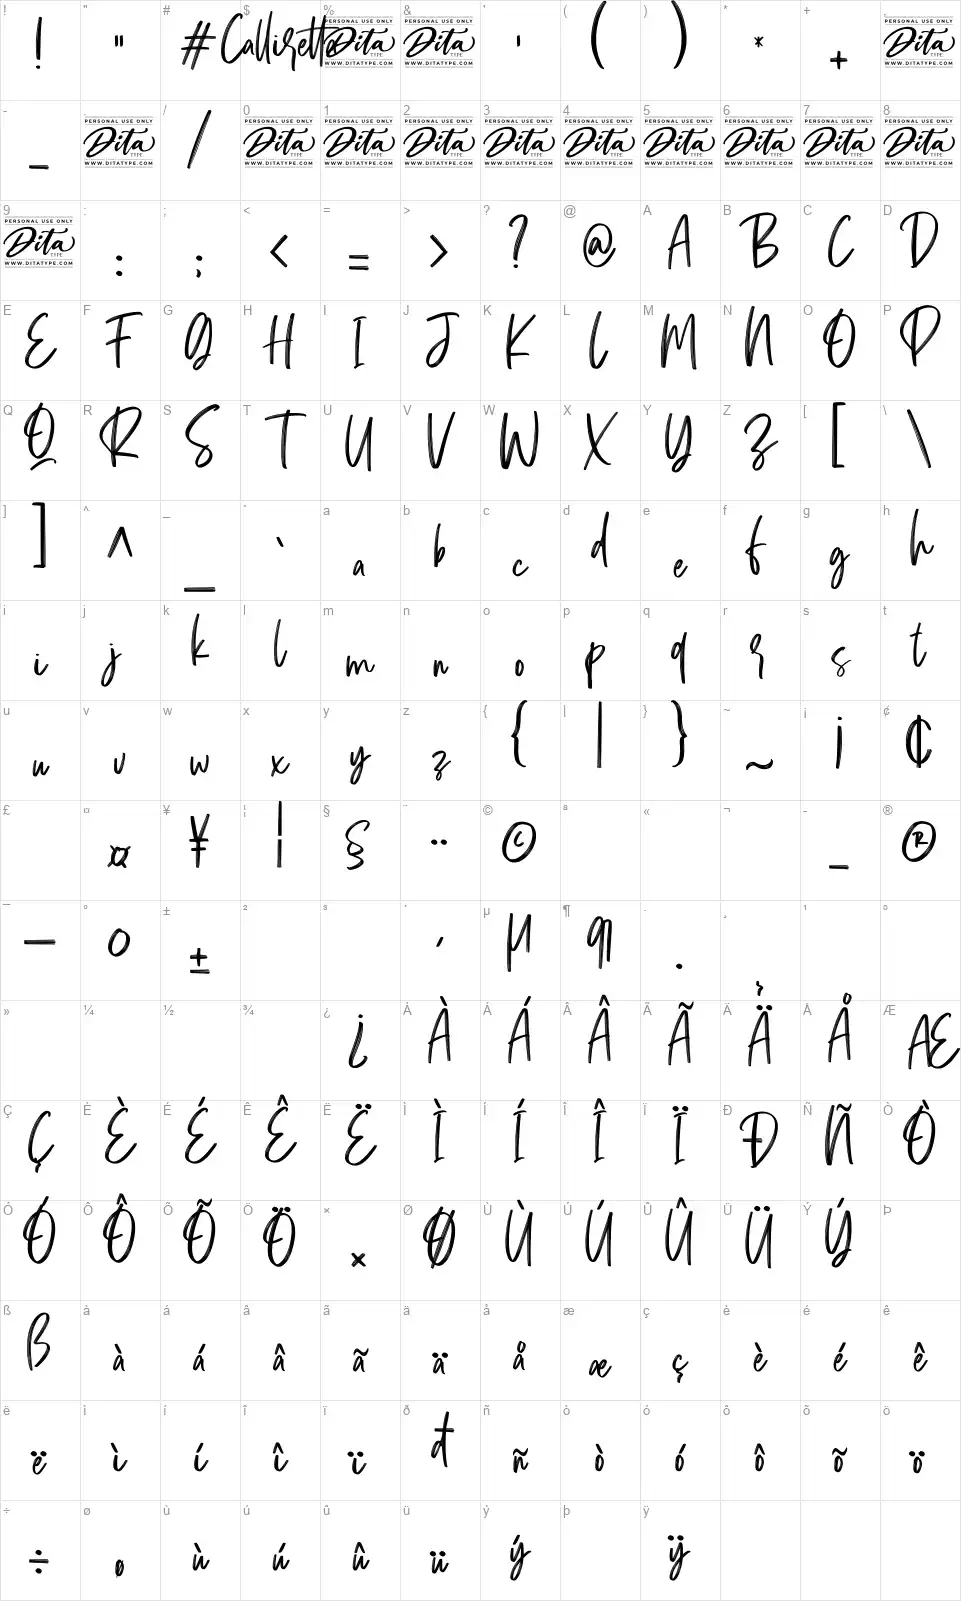 ! " # $ % & ' ( ) * + ,
! " #Callirette PERSONAL USE ONLY Dita TYPE WWW.DITATYPE.COM PERSONAL USE ONLY Dita TYPE WWW.DITATYPE.COM ' ( ) * + PERSONAL USE ONLY Dita TYPE WWW.DITATYPE.COM
- / 0 1 2 3 4 5 6 7 8
- PERSONAL USE ONLY Dita TYPE WWW.DITATYPE.COM / PERSONAL USE ONLY Dita TYPE WWW.DITATYPE.COM PERSONAL USE ONLY Dita TYPE WWW.DITATYPE.COM PERSONAL USE ONLY Dita TYPE WWW.DITATYPE.COM PERSONAL USE ONLY Dita TYPE WWW.DITATYPE.COM PERSONAL USE ONLY Dita TYPE WWW.DITATYPE.COM PERSONAL USE ONLY Dita TYPE WWW.DITATYPE.COM PERSONAL USE ONLY Dita TYPE WWW.DITATYPE.COM PERSONAL USE ONLY Dita TYPE WWW.DITATYPE.COM PERSONAL USE ONLY Dita TYPE WWW.DITATYPE.COM
9 : ; < = > ? @ A B C D
PERSONAL USE ONLY Dita TYPE WWW.DITATYPE.COM : ; < = > ? @ A B C D
E F G H I J K L M N O P
E F G H I J K L M N O P
Q R S T U V W X Y Z [ \
Q R S T U V W X Y Z [ \
] ^ _ ` a b c d e f g h
] ^ _ ` a b c d e f g h
i j k l m n o p q r s t
i j k l m n o p q r s t
u v w x y z { | } ~ ¡ ¢
u v w x y z { | } ~ ¡ ¢
£ ¤ ¥ ¦ § ¨ © ª « ¬ - ®
¤ ¥ ¦ § ¨ © - ®
¯ ° ± ² ³ ´ µ ¶ · ¸ ¹ º
¯ ° ± ´ µ ¶ · ¸
» ¼ ½ ¾ ¿ À Á Â Ã Ä Å Æ
¿ À Á Â Ã Ä Å Æ
Ç È É Ê Ë Ì Í Î Ï Ð Ñ Ò
Ç È É Ê Ë Ì Í Î Ï Ð Ñ Ò
Ó Ô Õ Ö × Ø Ù Ú Û Ü Ý Þ
Ó Ô Õ Ö × Ø Ù Ú Û Ü Ý
ß à á â ã ä å æ ç è é ê
ß à á â ã ä å æ ç è é ê
ë ì í î ï ð ñ ò ó ô õ ö
ë ì í î ï ð ñ ò ó ô õ ö
÷ ø ù ú û ü ý þ ÿ
÷ ø ù ú û ü ý ÿ